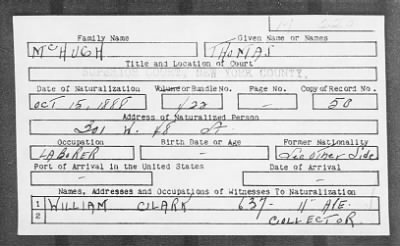 Family Name Given Name or Names
McHUGH THOMAS
Title and Location of Court
SUPERIOR COURT, NEW YORK COUNTY.
Date of Naturalization Volume or Bundle No. Page No. Copy of Record No.
OCT 15, 1888 422 - 50
Address of Naturalized Person
301 W. 48 St.
Occupation Birth Date or Age Former Nationality
LABORER - See other Side
Port of Arrival in the United States Date of Arrival
- -
Names, Addresses and Occupations of Witnesses To Naturalization
1 WILLIAM CLARK 637- 11 AVE.
2 COLLECTOR